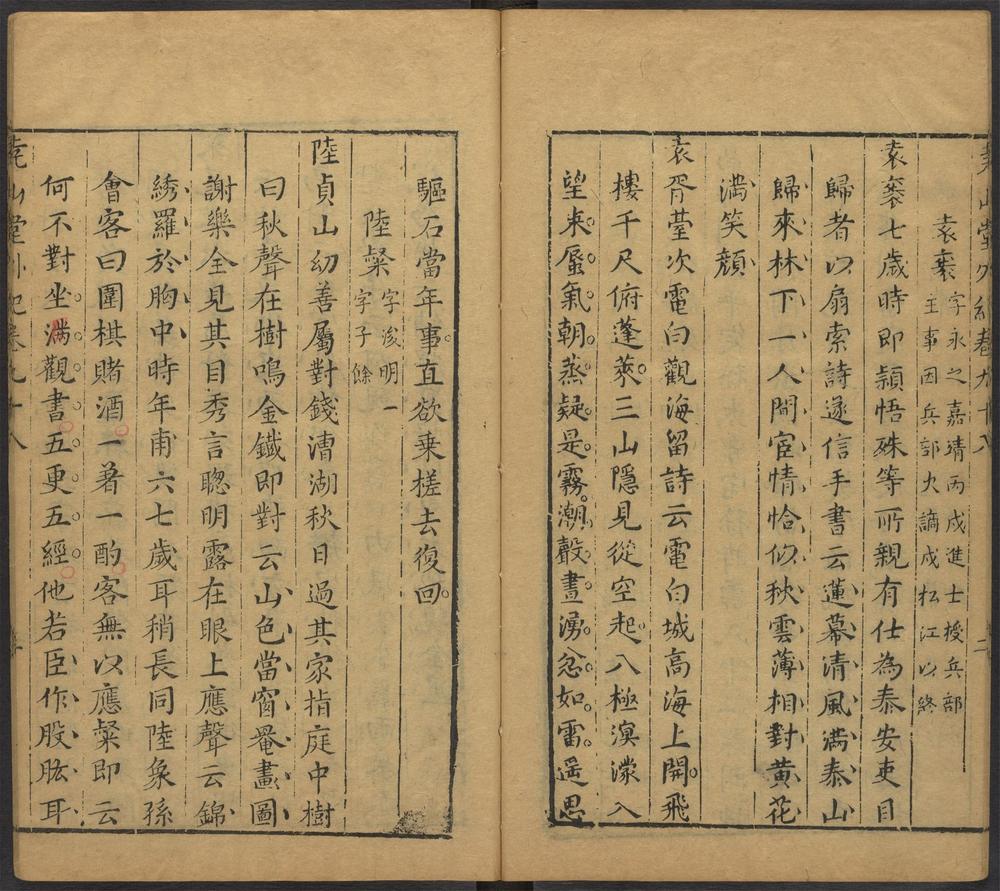 堯山堂外紀卷九十八 二
袁袠 字永之嘉靖丙戌進士授兵部
主事因兵部火謫戍松江以終
袁袠七歲時即穎悟殊等所親有仕為泰安吏目
歸者以扇索詩遂信手書云蓮幕清風滿泰山
歸來林下一人間宦情恰似秋雲薄相對黃花
滿笑顏
袁胥臺次電白觀海留詩云電白城高海上開飛
樓千尺俯蓬萊三山隱見從空起八極溟濛入
望來蜃氣朝蒸疑是霧潮聲晝湧忽如雷遥思
驅石當年事直欲乗槎去復回
陸粲 字浚明一
字子餘
陸貞山幼善屬對錢漕湖秋日過其家指庭中樹
曰秋聲在樹鳴金鐵即對云山色當窗罨畫圖
謝樂全見其目秀言聰明露在眼上應聲云錦
綉羅於胸中時年甫六七歲耳稍長同陸象孫
會客曰圍棋賭酒一著一酌客無以應粲即云
何不對坐滿觀書五更五經他若臣作股肱耳
堯山堂外紀卷九十八